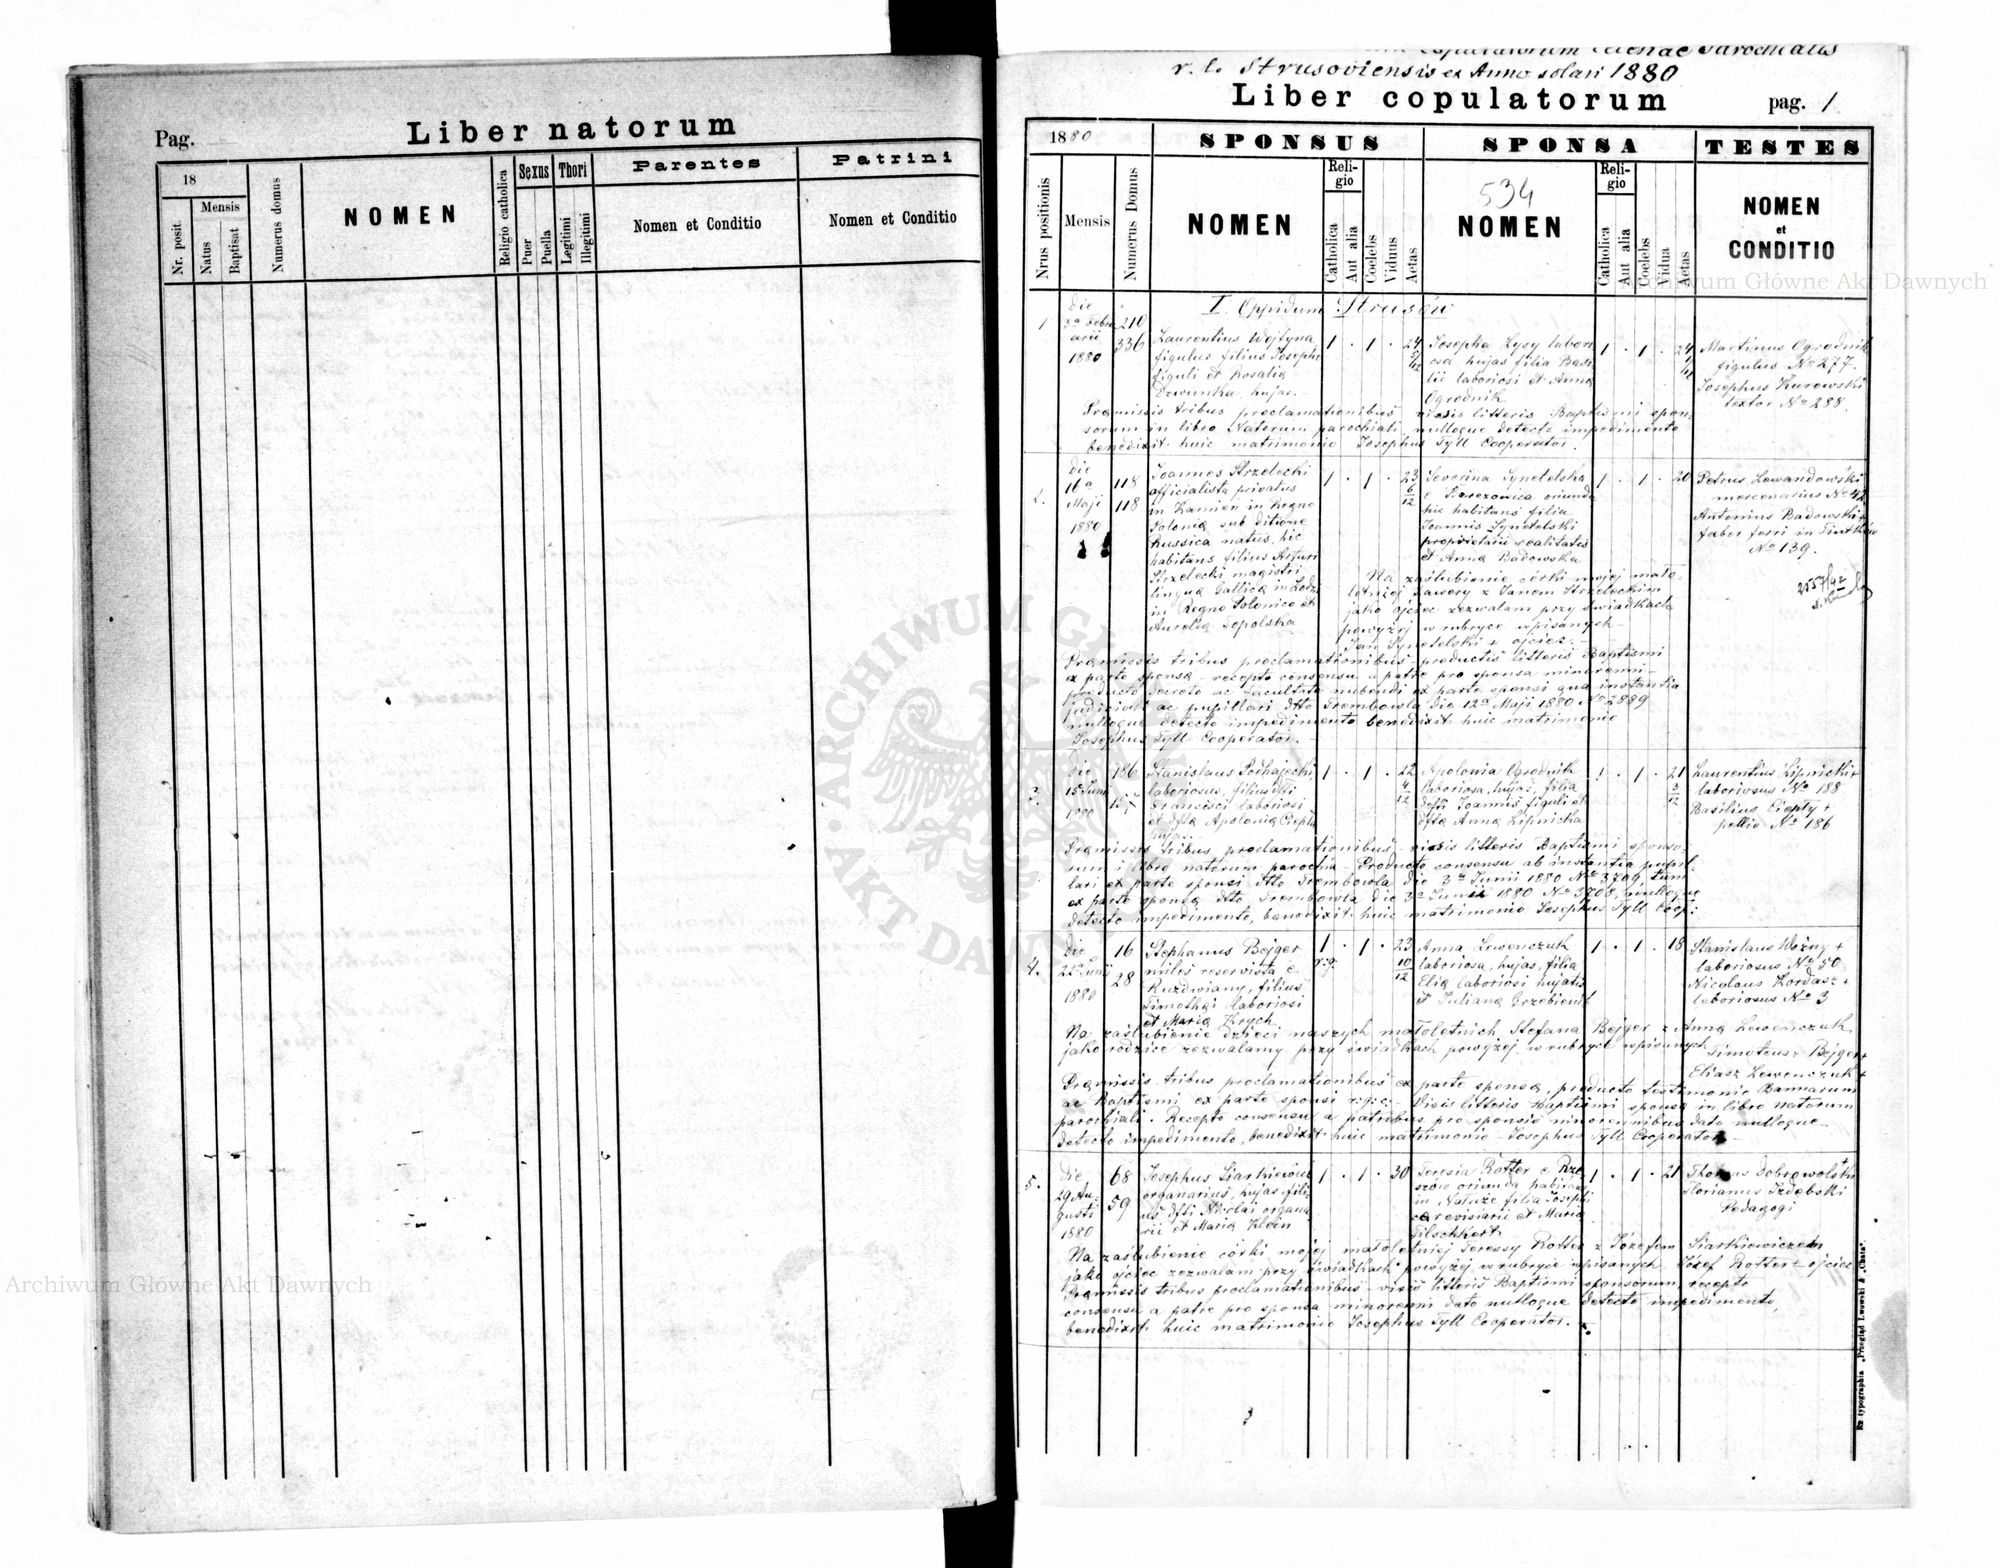 Pag.
Liber natorum
18
Mensis
Nr. posit.
Natus
Baptisat
Numerus domus
NOMEN
Religio catholica
Sexus
Puer
Puella
Thori
Legitimi
Illegitimi
Parentes
Nomen et Conditio
Patrini
Nomen et Conditio
r. l. Strusoviensis ex Anno solari 1880
Liber copulatorum
pag. 1
1880
SPONSUS
SPONSA
TESTES
Nrus positionis
Mensis
Numerus Domus
NOMEN
Religio
Catholica
Aut alia
Coelebs
Viduus
Aetas
534
NOMEN
Religio
Catholica
Aut alia
Coelebs
Vidua
Aetas
NOMEN
et
CONDITIO
I. Oppidum Strusów
1
die
3a Febru
arii
1880
210
336
Laurentius Wojtyna
figulus filius Josephi
figuli et Rosalia
Dzwonka, hujas.
1 . 1 . 24 5/12
Josepha Lysy labori
osa hujas filia Basi
lii laboriosi et Anna
Ogrodnik
1 . 1 . 24
Martinus Ogrodnik
figulus No 277.
Josephus Kurowski
textor No 288.
Praemissis tribus proclamationibus, visis litteris Baptismi spon-
sorum in libro Natorum parochiali, nulloque detecto impedimento
benedixit huic matrimonio Josephus Tyll Cooperator.
2.
die
16a
Maji
1880
118
118
Joannes Strzelecki
officialista privatus
in Kamień in Regno
Poloniae sub ditione
Russica natus, hic
habitans filius Arturi
Strzelecki magistri
linguae Gallicae in Łodzi
in Regno Polonico et
Aurelia Topolska
1 . 1 . 23 6/12
Severina Synetelska
oriunda
hic habitans filia
Joannis Synetelski
proprietarii realitatis
et Anna Badowska
1 . 1 . 20
Petrus Lewandowski
mercenarius No 42
Antonius Badowski +
faber ferri in
No 139.
Na zaślubienie córki mojej mało-
letniej z Janem Strzeleckim
jako ojciec zezwalam przy świadkach
powyżej w rubryce wpisanych
Jan Synetelski + ojciec.
Praemissis tribus proclamationibus – productis litteris Baptismi
ex parte sponsa – recepto consensu a patre pro sponsa minorenni –
producto decreto ac facultate nubendi ex parte sponsi qua instantia
judiciali ac pupillari dtto Trembowla die 12a Maji 1880 No 2889
nulloque detecto impedimento benedixit huic matrimonio
Josephus Tyll Cooperator.
3.
die
15 Junii
1880
186
Stanislaus Podhajecki
laboriosus, filius dfti
Francisci laboriosi
et dfta Apolonia Ciepła
hujas.
1 . 1 . 22 4/12
Apolonia Ogrodnik
laboriosa, hujas, filia
dfti Joannis figuli et
dfta Anna Lipnicka
1 . 1 . 21 3/12
Laurentius Lipnicki +
laboriosus No 188
Basilius Ciepły +
pellio No 186
Praemissis tribus proclamationibus – visis litteris Baptismi sponso-
rum i libro natorum parochia – Producto consensu ab instantia pupil-
lari ex parte sponsi dtto Trembowla die 3a Junii 1880 No 3709 tum
ex parte sponsa dtto Trembowla die 3a Junii 1880 No 3708, nulloque
detecto impedimento, benedixit huic matrimonio Josephus Tyll Coop:
4.
die
22a Junii
1880
16
28
Stephanus Bejger
miles reservista e
Ruzdwiany, filius
Timothei laboriosi
et Maria Krych
1 . 1 . 23 10/12
r. g.
Anna Lewenczuk
laboriosa, hujas, filia
Elia laboriosi hujatis
et Juliana Grzebieniak
1 . 1 . 18
Stanislaus Woźny +
laboriosus No 50
Nicolaus Kordasz +
laboriosus No 3
Na zaślubienie dzieci naszych małoletnich Stefana Bejger z Anną Lewenczuk
jako rodzice zezwalamy przy świadkach powyżej w rubryce wpisanych
Timoteusz Bejger +
Eliasz Lewenczuk +
Praemissis tribus proclamationibus ex parte sponsa, producto testimonio Bannorum
ac Baptismi ex parte sponsi – Visis litteris Baptismi sponsa in libro Natorum
parochiali. Recepto consensu a patribus pro sponsis minorennibus dato nulloque
detecto impedimento, benedixit huic matrimonio – Josephus Tyll Cooperator –
5.
die
29 Au-
gusti
1880
68
59
Josephus Siarkiewicz
organarius, hujas, fili
us dfti Nicolai organa
rii et Maria Klein
1 . 1 . 30
Teresia Rotter e Rze
szów oriunda habitans
in Nałuże filia Josephi
cerevisiarii et Maria
1 . 1 . 21
Thomas Dobrowolski
Florianus Izdebski
Pedagogi
Na zaślubienie córki mojej małoletniej Teresy Rotter z Józefem Siarkiewiczem
jako ojciec zezwalam przy świadkach powyżej w rubryce wpisanych Józef Rotter – ojciec
Praemissis tribus proclamationibus – visis litteris Baptismi sponsorum, recepto
consensu a patre pro sponsa minorenni dato nulloque detecto impedimento,
benedixit huic matrimonio Josephus Tyll Cooperator.
Ex typographia „Przegląd Lwowski & „Chata".
Archiwum Główne Akt Dawnych
Archiwum Główne Akt Dawnych
ARCHIWUM GŁÓWNE AKT DAWNYCH